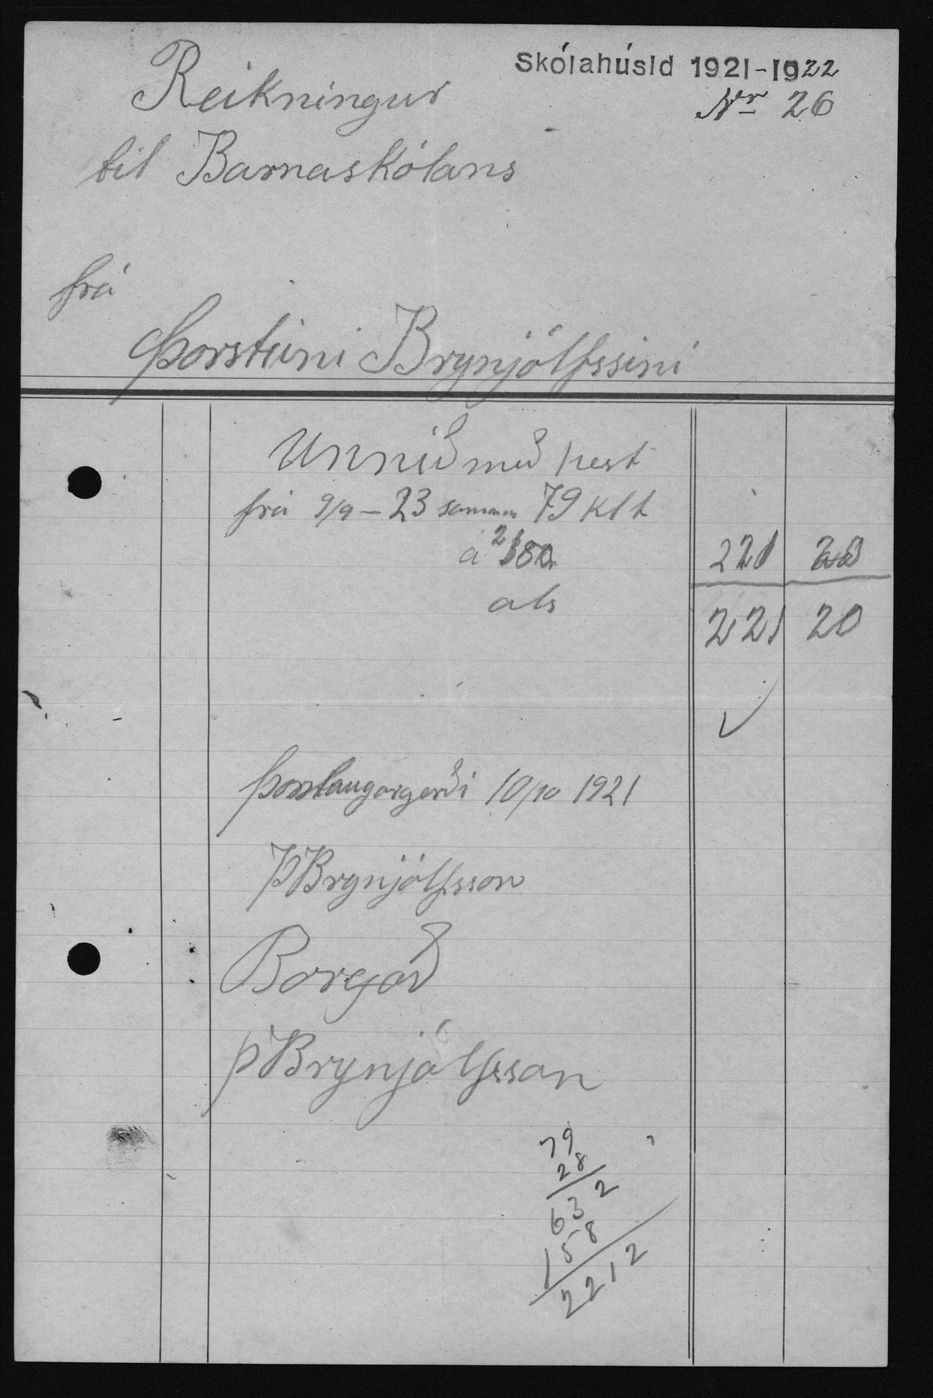 Skólahúsid 1921-1922
Nr 26
Reikningur
til Barnaskólans
frá
Þorsteini Brynjólfssini
Unnið með hest
frá 9/9 - 23 samman 79 klt
á 2 80 221 20
als 221 20
Þorlaugargerði 10/10 1921
ÞBrynjólfsson
Borgað
ÞBrynjólfsson
79
28
632
158
2212